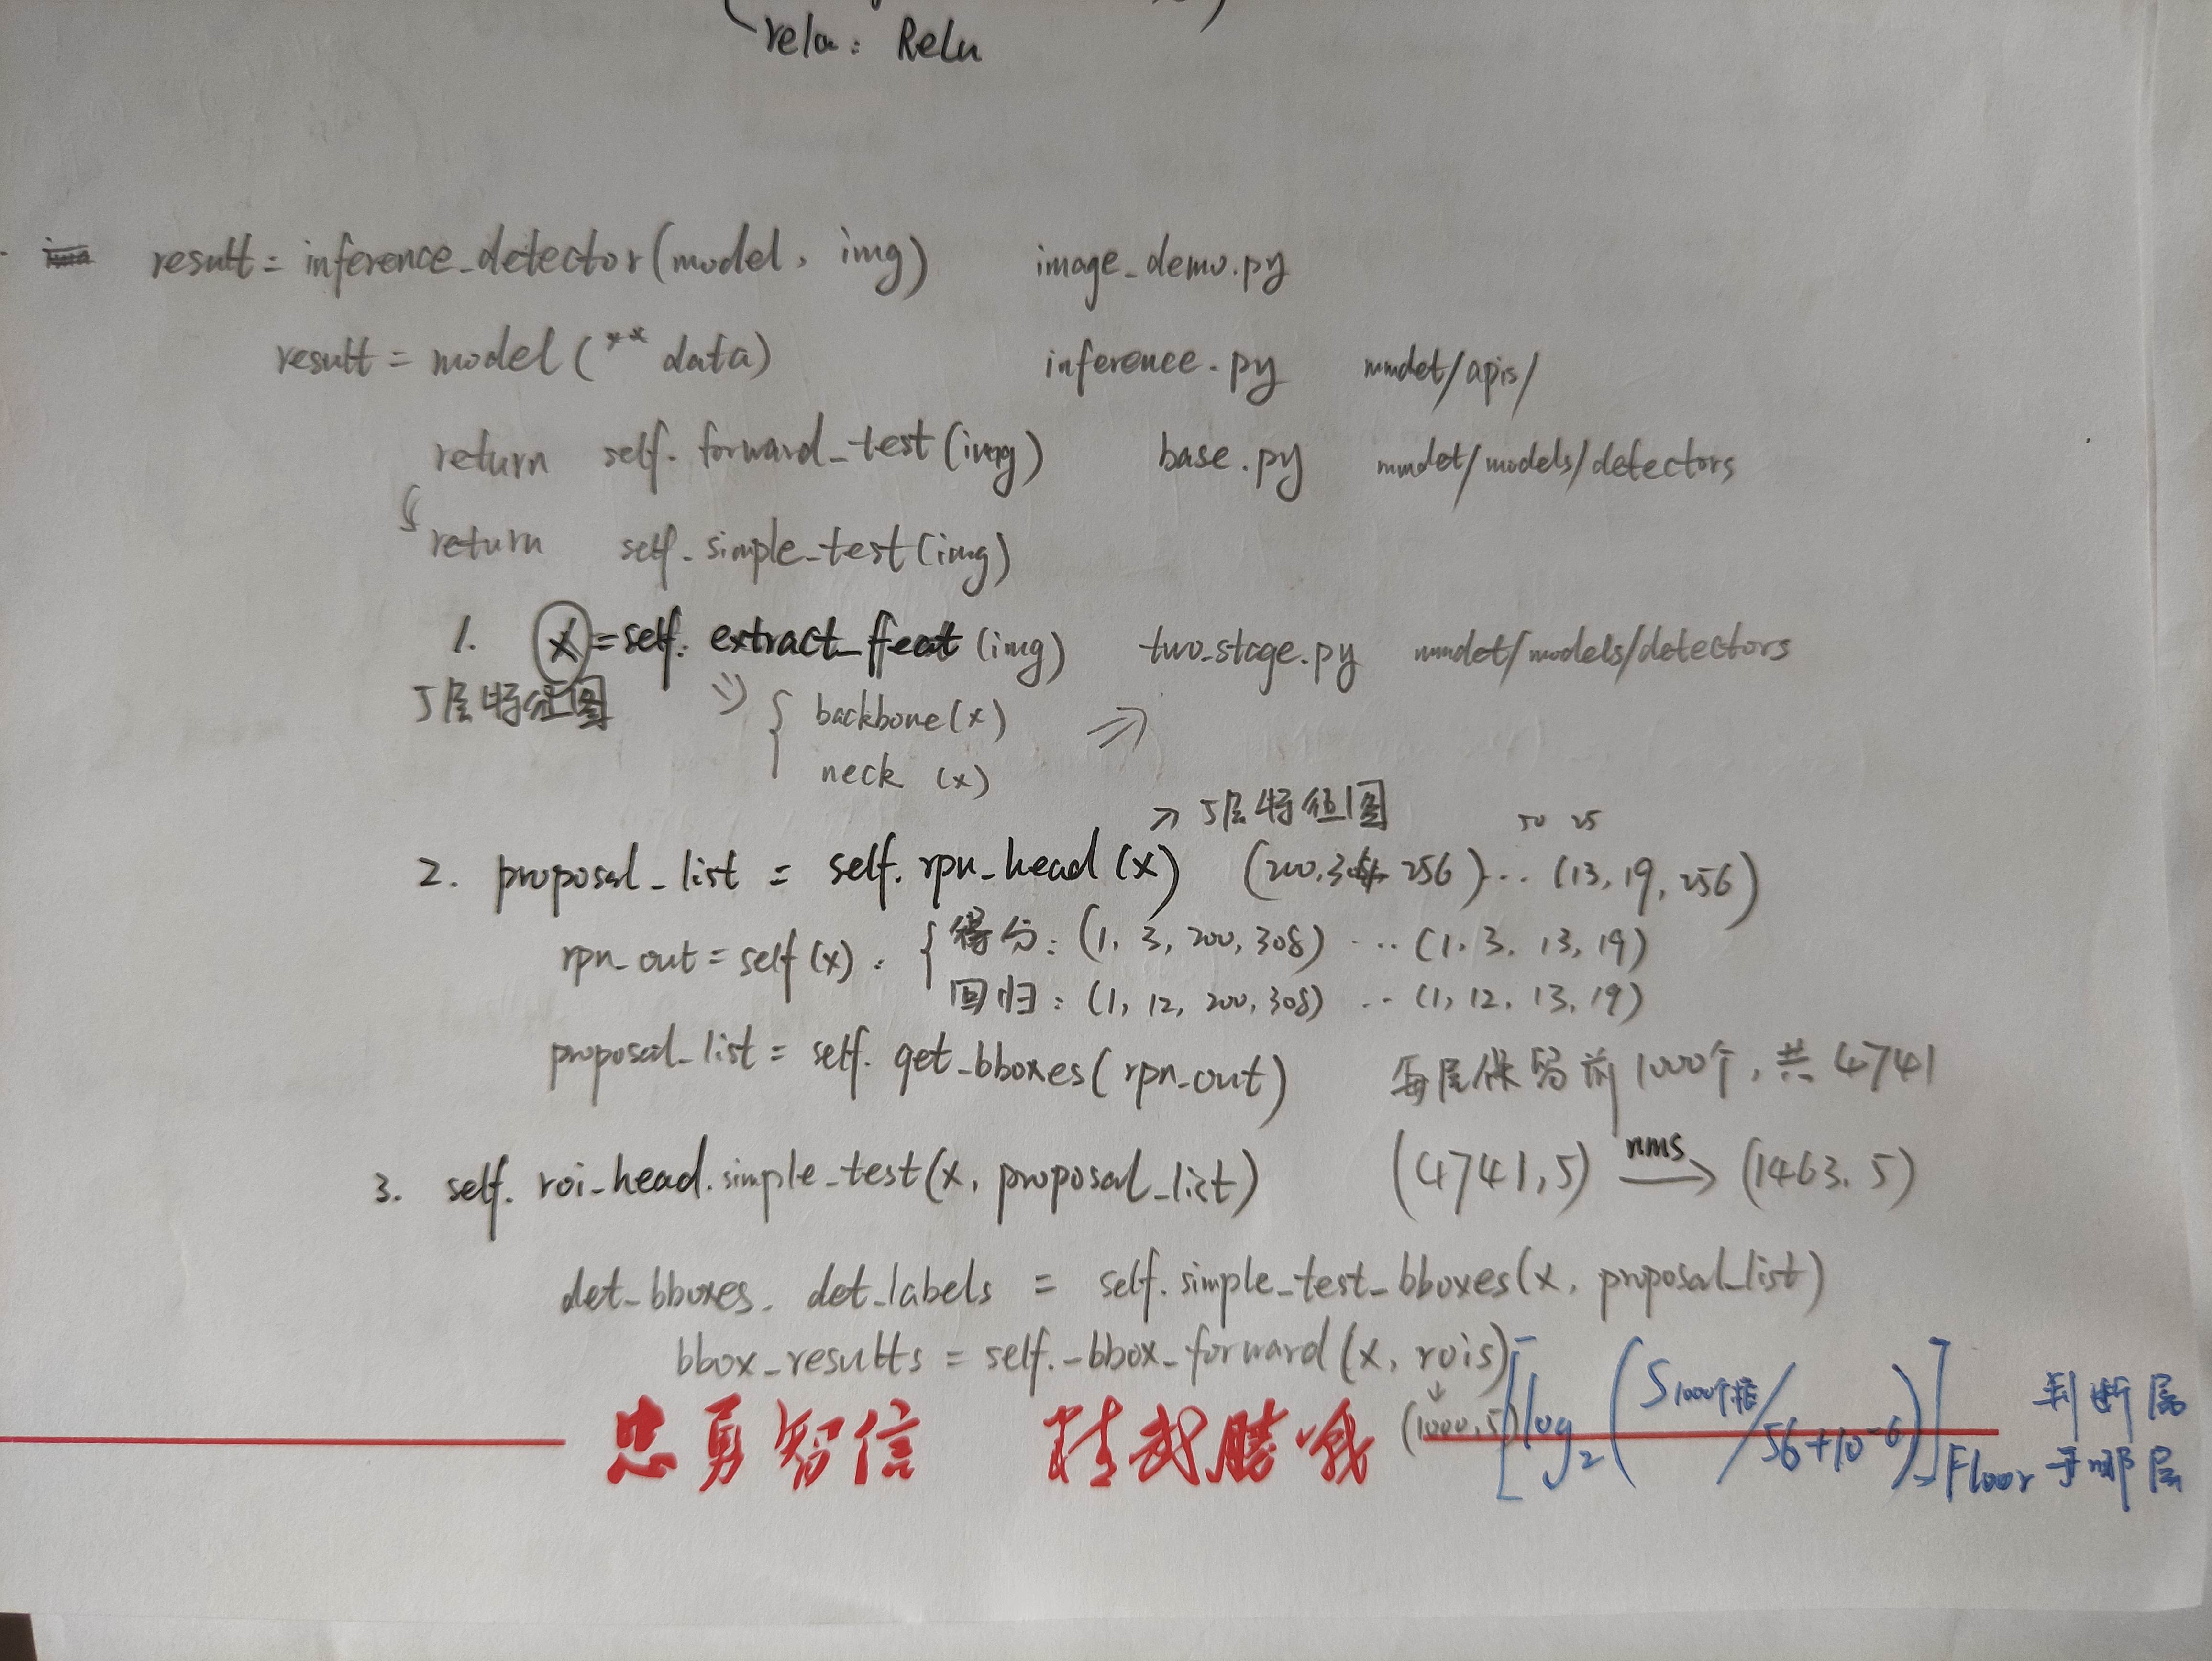 relu: Relu
result = inference_detector(model, img) image_demo.py
result = model(**data) inference.py mmdet/apis/
return self.forward_test(img) base.py mmdet/models/detectors
return self.simple_test(img)
1. x = self.extract_feat(img) two_stage.py mmdet/models/detectors
5层特征图 ⇒ { backbone(x) ⇒
neck (x)
↗ 5层特征图 50 25
2. proposal_list = self.rpn_head(x) (200,304, 256) ... (13, 19, 256)
rpn_out = self(x): { 得分: (1, 3, 200, 308) ... (1, 3, 13, 19)
回归: (1, 12, 200, 308) ... (1, 12, 13, 19)
proposal_list = self.get_bboxes(rpn_out) 每层保留前1000个,共4741
3. self.roi_head.simple_test(x, proposal_list) (4741, 5) nms→ (1463, 5)
det_bboxes, det_labels = self.simple_test_bboxes(x, proposal_list)
bbox_results = self._bbox_forward(x, rois)
↓
(1000, 5) [log₂(S1000个框/56+10⁻⁶)]Floor 判断属于哪层
忠勇智信